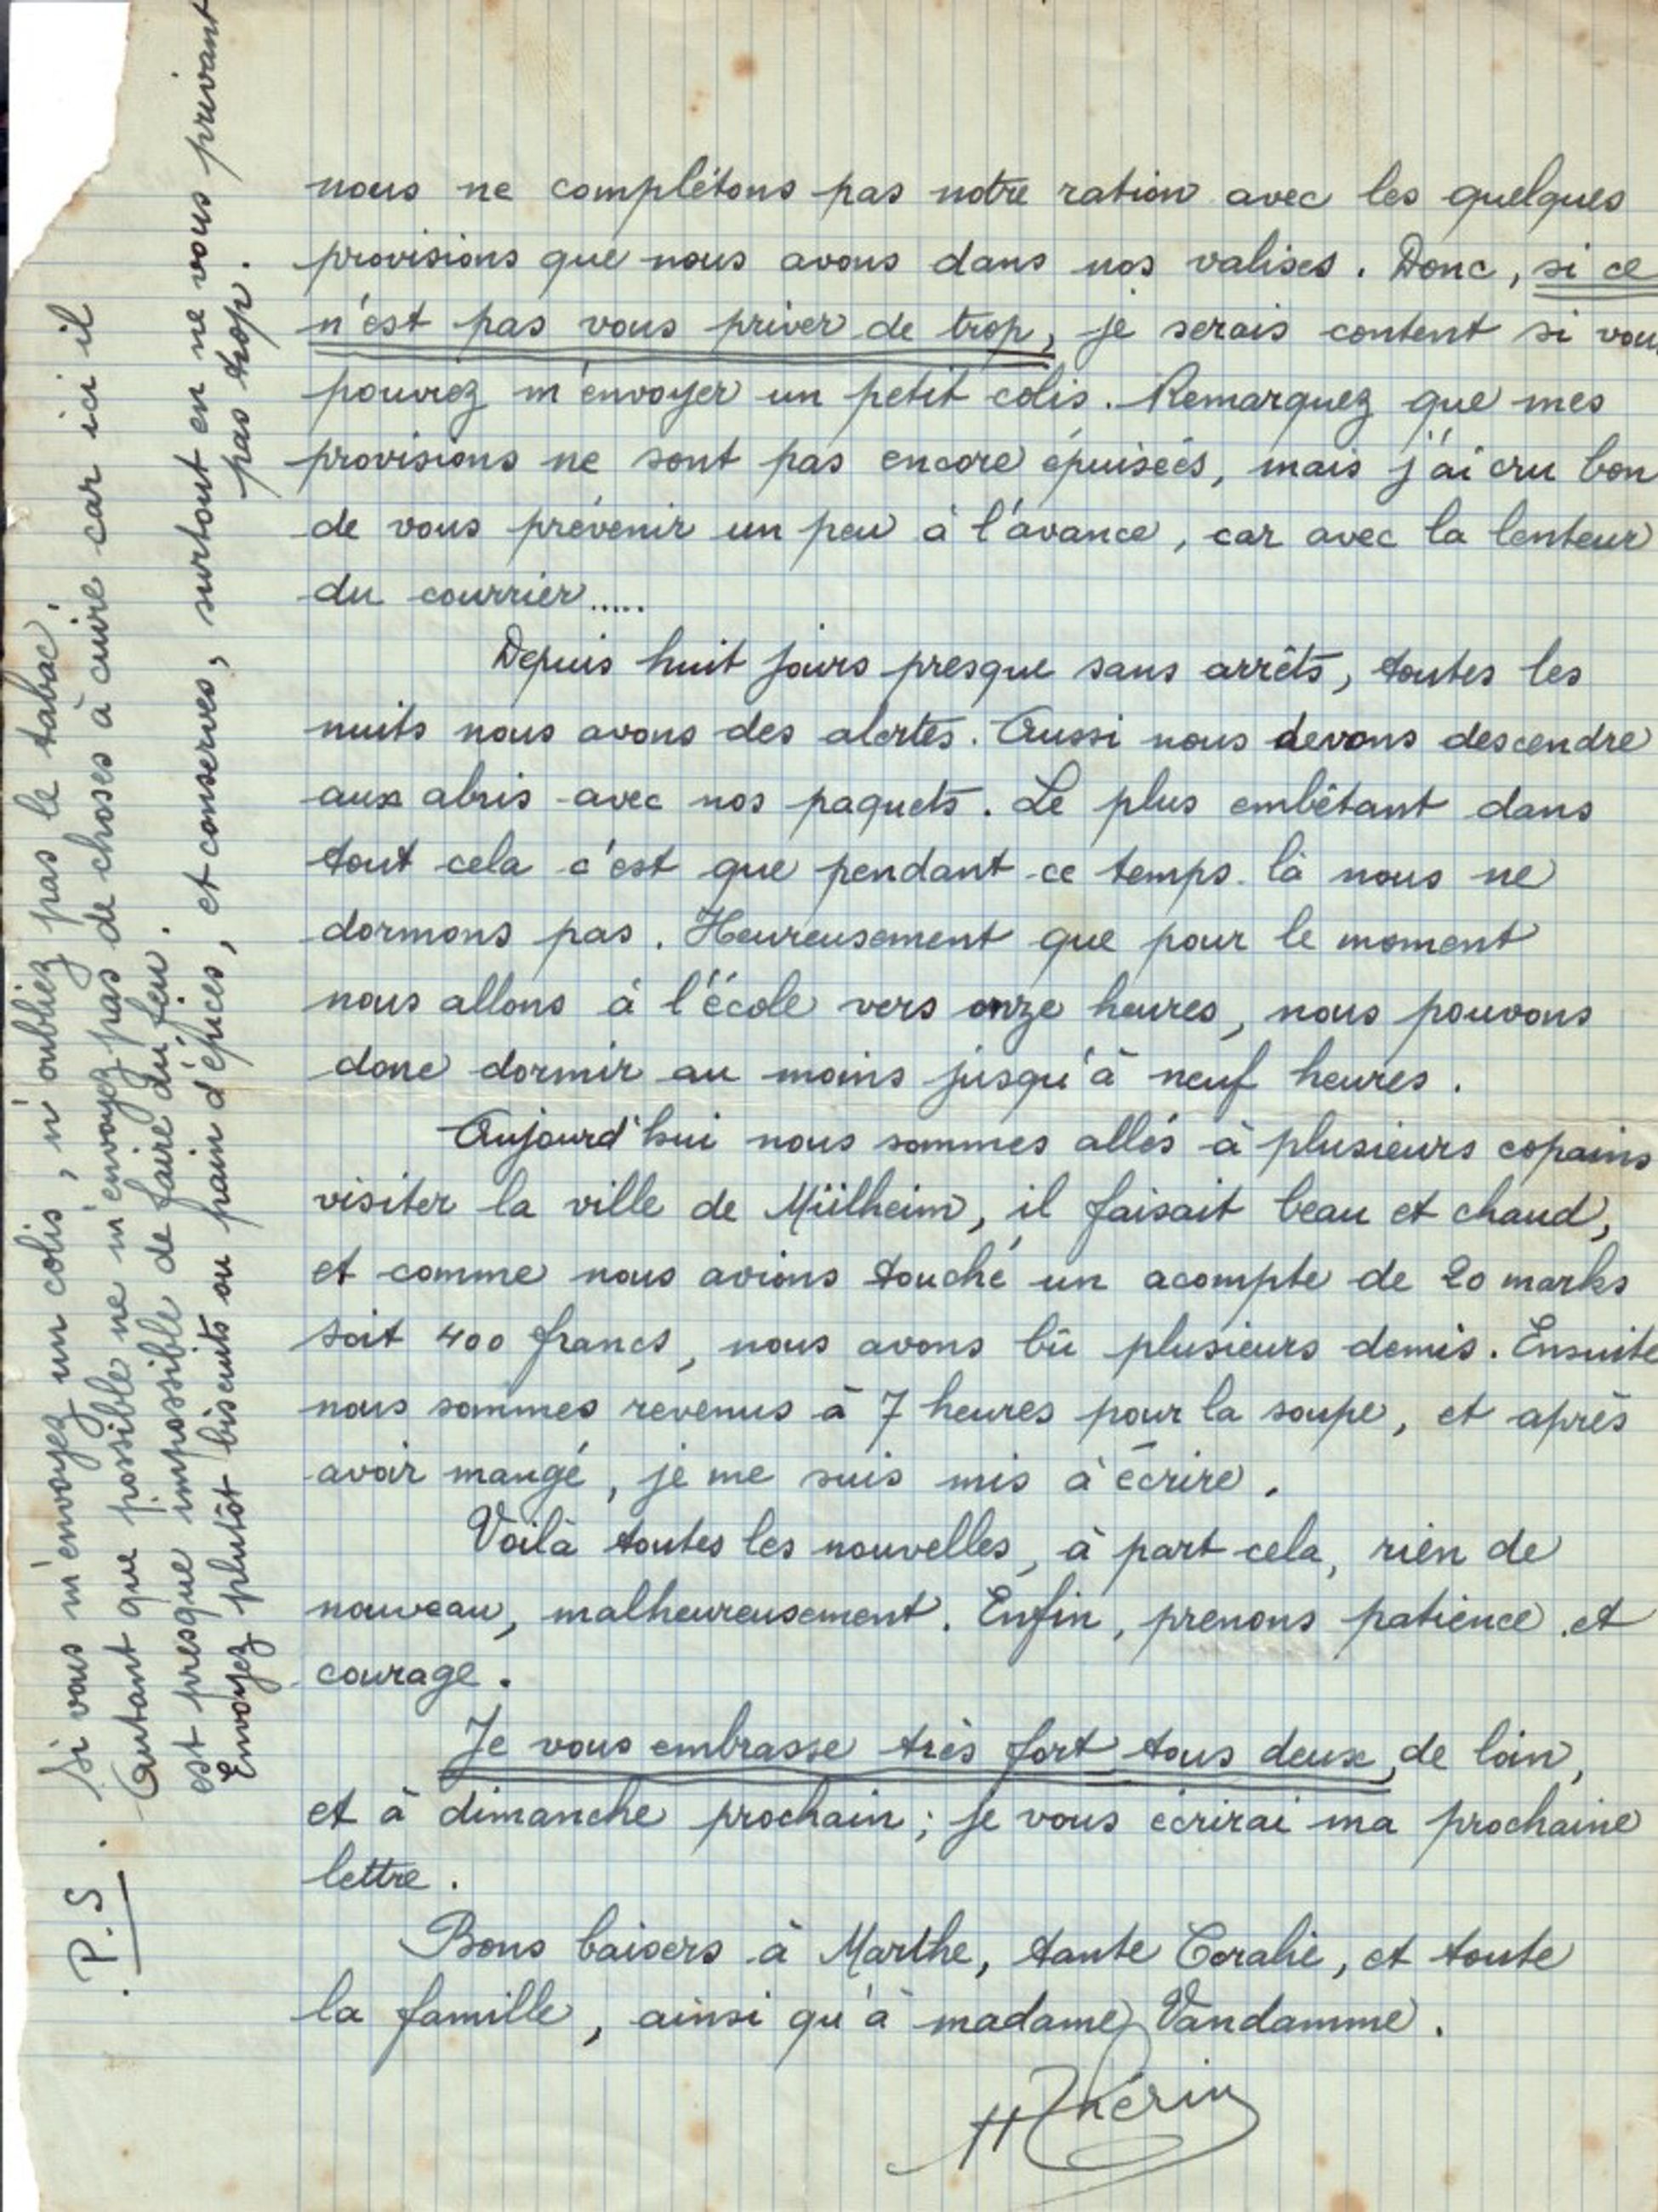 nous ne complétons pas notre ration avec les quelques
provisions que nous avons dans nos valises. Donc, si ce
n'est pas vous priver de trop, je serais content si vous
pouviez m'envoyer un petit colis. Remarquez que mes
provisions ne sont pas encore épuisées, mais j'ai cru bon
de vous prévenir un peu à l'avance, car avec la lenteur
du courrier.....
Depuis huit jours presque sans arrêts, toutes les
nuits nous avons des alertes. Aussi nous devons descendre
aux abris avec nos paquets. Le plus embêtant dans
tout cela c'est que pendant ce temps là nous ne
dormons pas. Heureusement que pour le moment
nous allons à l'école vers onze heures, nous pouvons
donc dormir au moins jusqu'à neuf heures.
Aujourd'hui nous sommes allés à plusieurs copains
visiter la ville de Mülheim, il faisait beau et chaud,
et comme nous avions touché un acompte de 20 marks
soit 400 francs, nous avons bû plusieurs demis. Ensuite
nous sommes revenus à 7 heures pour la soupe, et après
avoir mangé, je me suis mis à écrire.
Voilà toutes les nouvelles, à part cela, rien de
nouveau, malheureusement. Enfin, prenons patience et
courage.
Je vous embrasse très fort tous deux, de loin,
et à dimanche prochain; je vous écrirai ma prochaine
lettre.
Bons baisers à Marthe, tante Coralie, et toute
la famille, ainsi qu'à madame Vandamme.
P.S. Si vous m'envoyez un colis, n'oubliez pas le tabac.
Autant que possible ne m'envoyez pas de choses à cuire car ici il
est presque impossible de faire du feu.
Envoyez plutôt biscuits ou pain d'épices, et conserves, surtout en ne vous privant
pas trop.